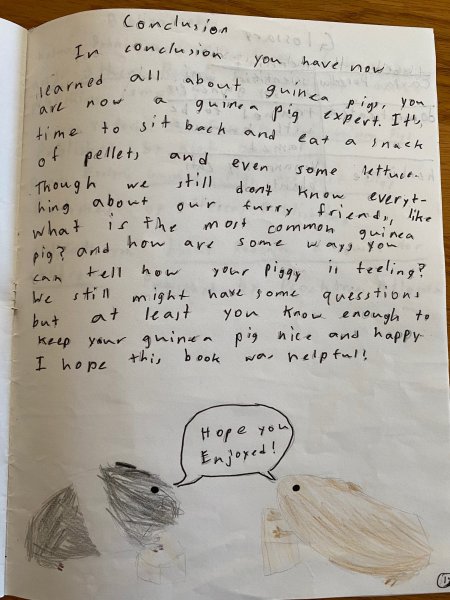 Conclusion
In conclusion you have now
learned all about guinea pigs, you
are now a guinea pig expert. It's
time to sit back and eat a snack
of pellets and even some lettuce.
Though we still don't know everyt-
hing about our furry friends, like
what is the most common guinea
pig? and how are some ways you
can tell how your piggy is feeling?
We still might have some quesstions
but at least you know enough to
keep your guinea pig nice and happy
I hope this book was helpful!
Hope you
Enjoyed!